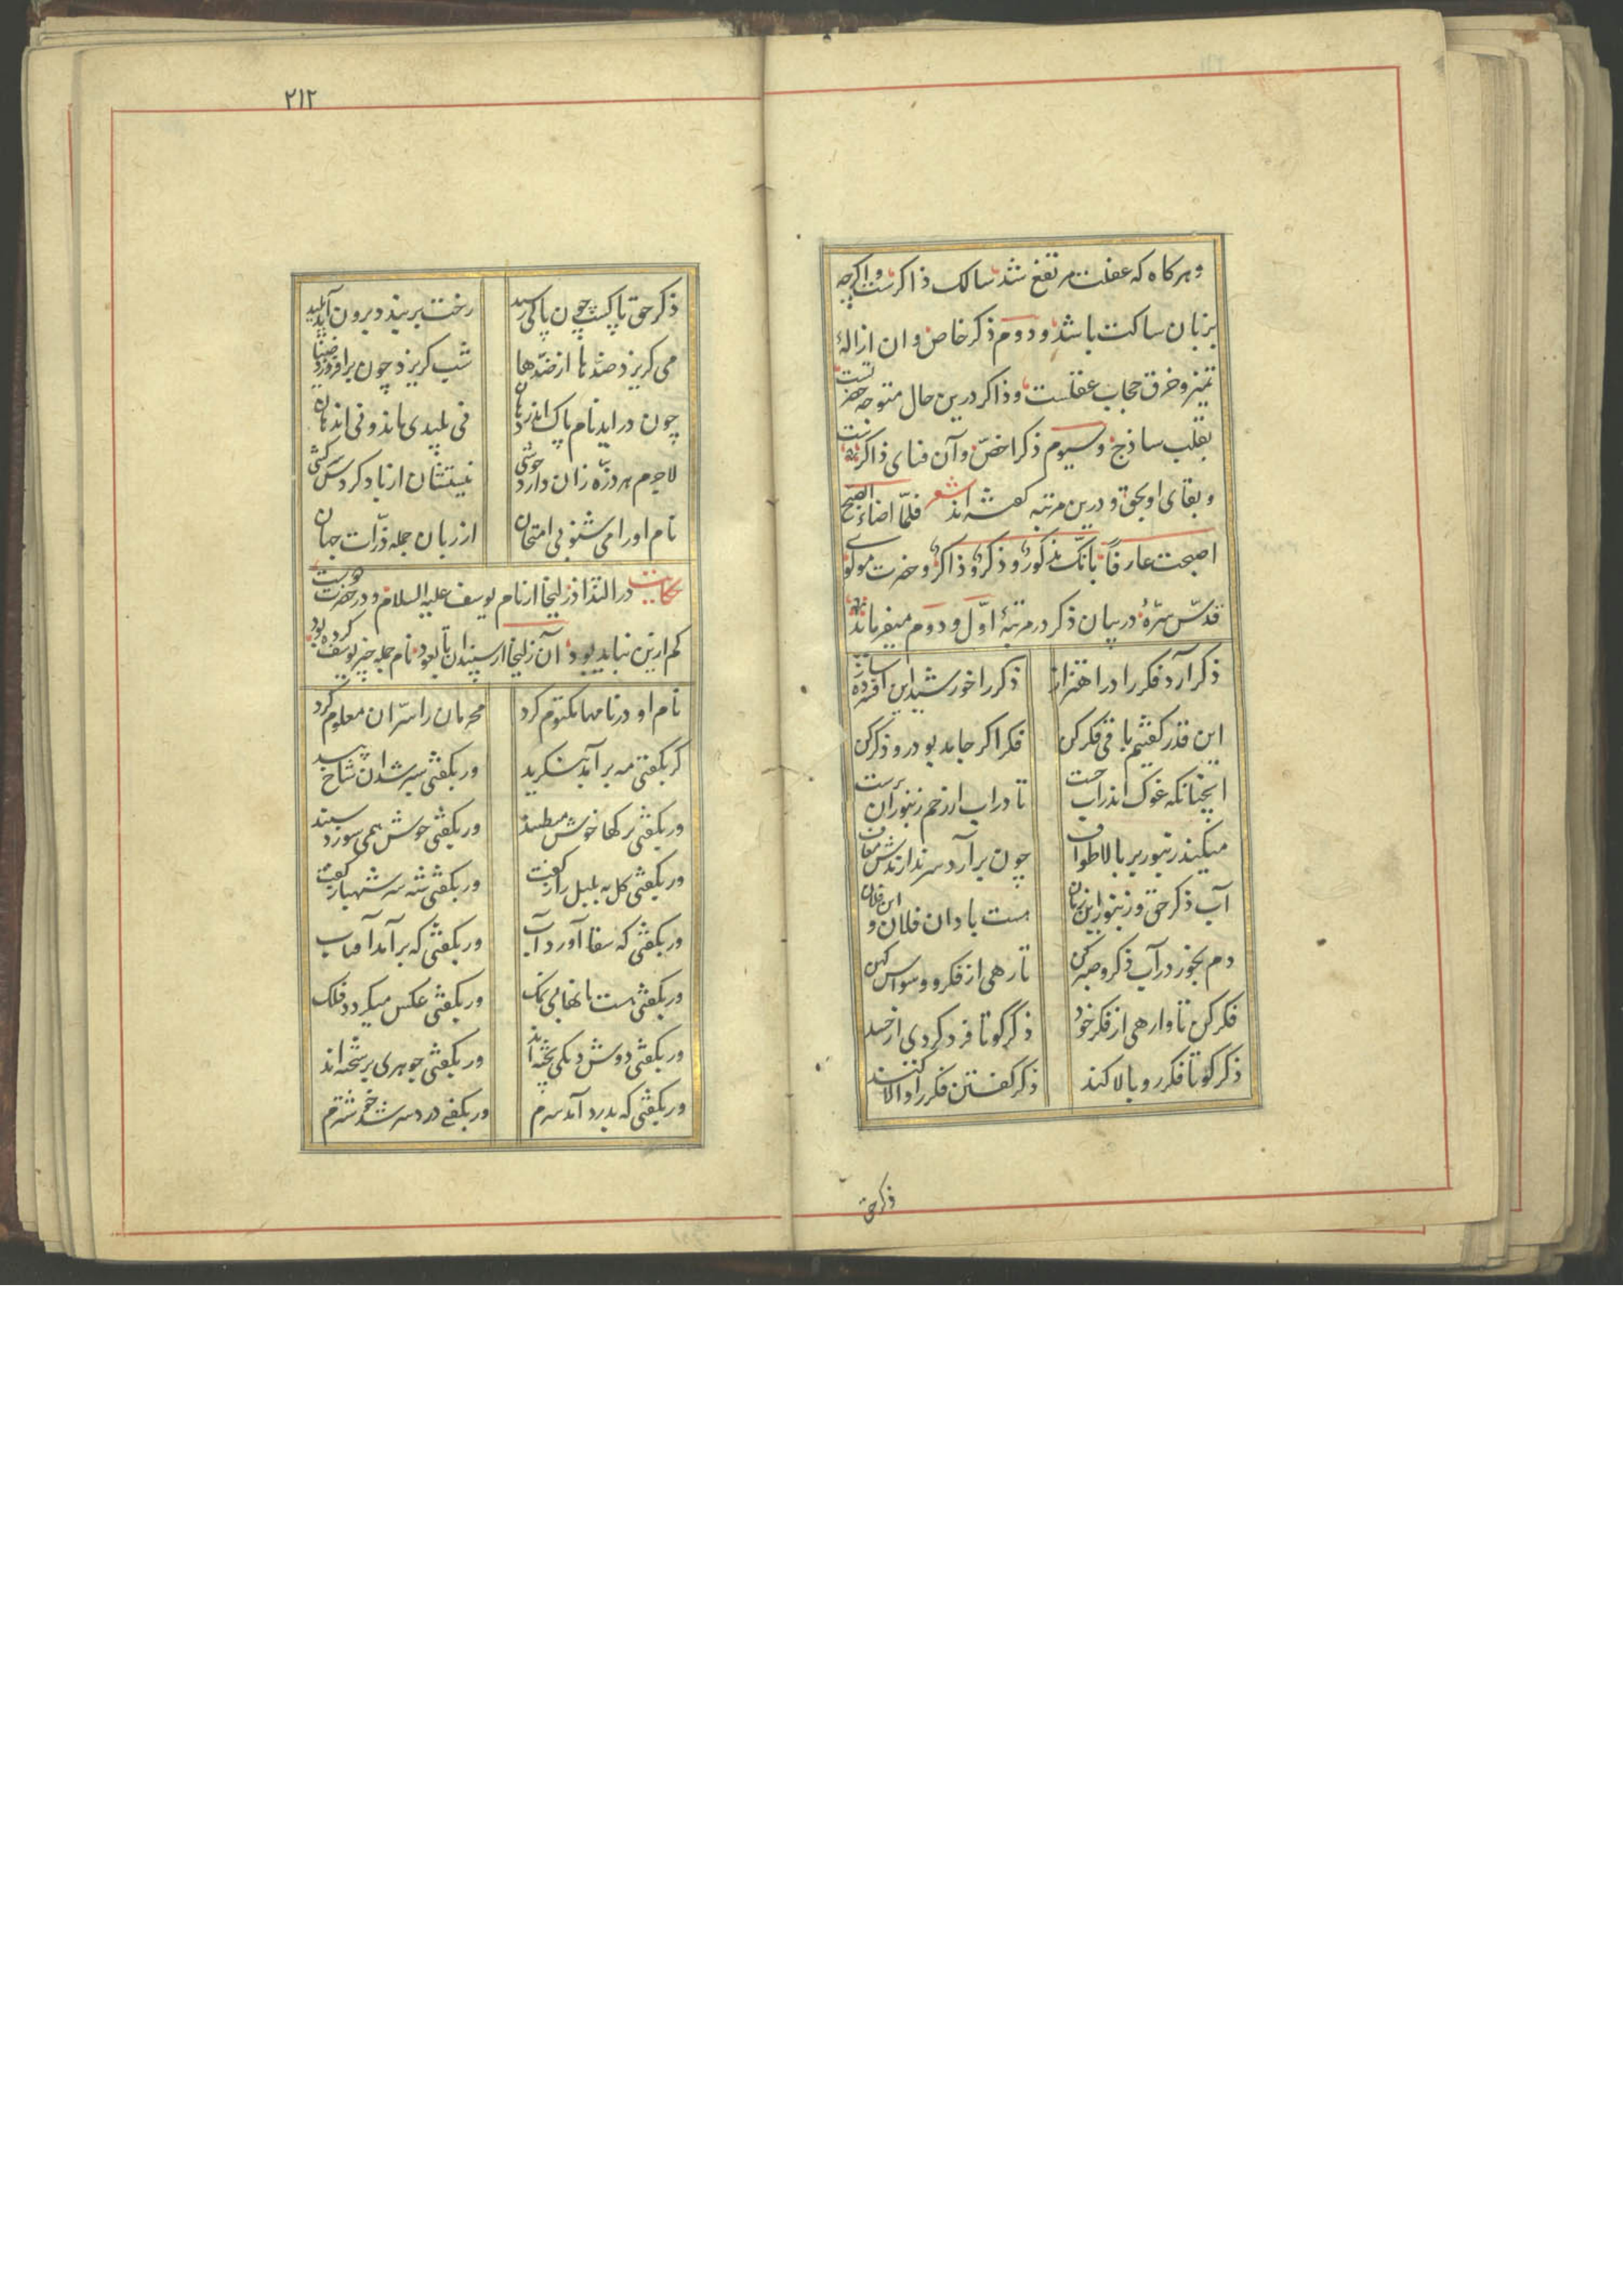 و هر کاه که غفلت مرتفع شد سالک ذاکرست و اکرچه
بزبان ساکت باشد و دوم ذکر خاص و ان ازالهٔ
تمیز و خرق حجاب عقلست و ذاکر درین حال متوجه حضرتست
بقلب ساذج و سیوم ذکر اخصّ و آن فنای ذاکرست
و بقای او بحق و درین مرتبه کفته‌اند شعر فلمّا اضاء الصبح
اصبحت عارفاً بانّک مذکورٌ و ذکرٌ و ذاکرٌ و حضرت مولوی
قدّس سرّهٔ در بیان ذکر در مرتبهٔ اوّل و دوم میفرماید
ذکر آرد فکر را در اهتزاز ذکر را خورشید این افسرده ساز
این قدر کفتیم باقی فکر کن فکر اکر جامد بود رو ذکر کن
انچنانکه غوک اندر آب جست تا در اب از زخم زنبوران برست
میکند زنبور بر بالا طواف چون برآرد سر ندارندش معاف
آب ذکر حق و زنبور این زمان هست یاد ان فلان و این فلان
دم بخور در آب ذکر و صبر کن تا رهی از فکر و وسواس کهن
فکر کن تا وارهی از فکر خود ذکر کو تا فرد کردی از جسد
ذکر کو تا فکر رو بالا کند ذکر کفتن فکر را والا کند
ذکر حق
۲۱۲
ذکر حق پاکست چون پاکی رسید رخت بربندد برون آید پلید
می کریزد ضدّها از ضدّها شب کریزد چون برافروزد ضیا
چون دراید نام پاک اندر دهان نی پلیدی ماند و نی اندهان
لاجرم هر ذرّه زان دارد خوشی نیستشان از یاد کردش سرکشی
نام او را می شنو بی امتحان از زبان جمله ذرّات جهان
حکایت در التذاذ زلیخا از نام یوسف علیه السلام و در حضرت دوست
کم ازین نباید بود آن زلیخا از سپندان تا بعود نام جمله چیز یوسف کرده بود
نام او در نامها مکتوم کرد محرمان را سرّ ان معلوم کرد
کر بکفتی مه برآمد بنکرید ور بکفتی سبز شد ان شاخ بید
ور بکفتی برکها خوش میطپند ور بکفتی خوش همی سوزد سپند
ور بکفتی کل به بلبل راز کفت ور بکفتی شه سر شهباز کفت
ور بکفتی که سقا آورد آب ور بکفتی که برآمد آفتاب
ور بکفتی هست نانها بی نمک ور بکفتی عکس میکردد فلک
ور بکفتی دوش دیکی پخته اند ور بکفتی
ور بکفتی که بدرد آمد سرم ور بکفتی درد سر شد خوشترم